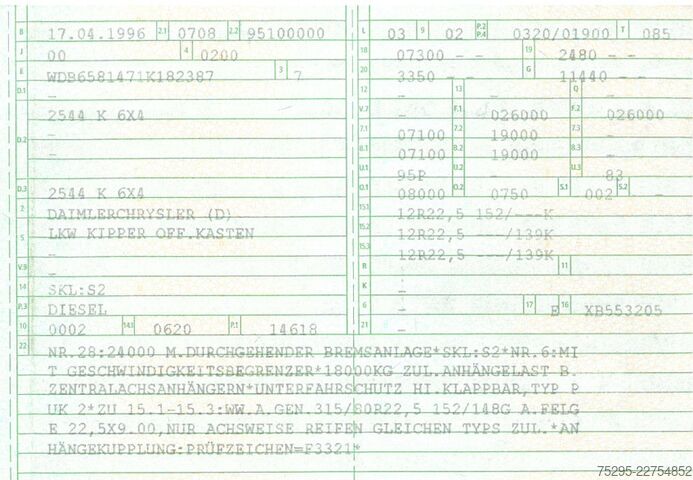 B 17.04.1996 2.1 0708 2.2 95100000
J 00 4 0200
E WDB6581471K182387 3 7
D.1 -
2544 K 6X4
-
D.2 -
D.3 2544 K 6X4
2 DAIMLERCHRYSLER (D)
5 LKW KIPPER OFF.KASTEN
-
V.9 -
14 SKL:S2
P.3 DIESEL
10 0002 14.1 0620 P.1 14618
L 03 9 02 P.2 P.4 0320/01900 T 085
18 07300 - - 19 2480 - -
20 3350 - - G 11440 - -
12 - 13 - Q -
V.7 - F.1 026000 F.2 026000
7.1 07100 7.2 19000 7.3 -
8.1 07100 8.2 19000 8.3 -
U.1 95P U.2 - U.3 83
O.1 08000 O.2 0750 S.1 002 S.2 -
15.1 12R22,5 152/---K
15.2 12R22,5 ---/139K
15.3 12R22,5 ---/139K
R - 11 -
K -
6 - 17 E 16 XB553205
21 -
22 NR.28:24000 M.DURCHGEHENDER BREMSANLAGE*SKL:S2*NR.6:MI
T GESCHWINDIGKEITSBEGRENZER*18000KG ZUL.ANHÄNGELAST B.
ZENTRALACHSANHÄNGERN*UNTERFAHRSCHUTZ HI.KLAPPBAR,TYP P
UK 2*ZU 15.1-15.3:WW.A.GEN.315/80R22,5 152/148G A.FELG
E 22,5X9.00,NUR ACHSWEISE REIFEN GLEICHEN TYPS ZUL.*AN
HÄNGEKUPPLUNG:PRÜFZEICHEN=F3321*
75295-22754852